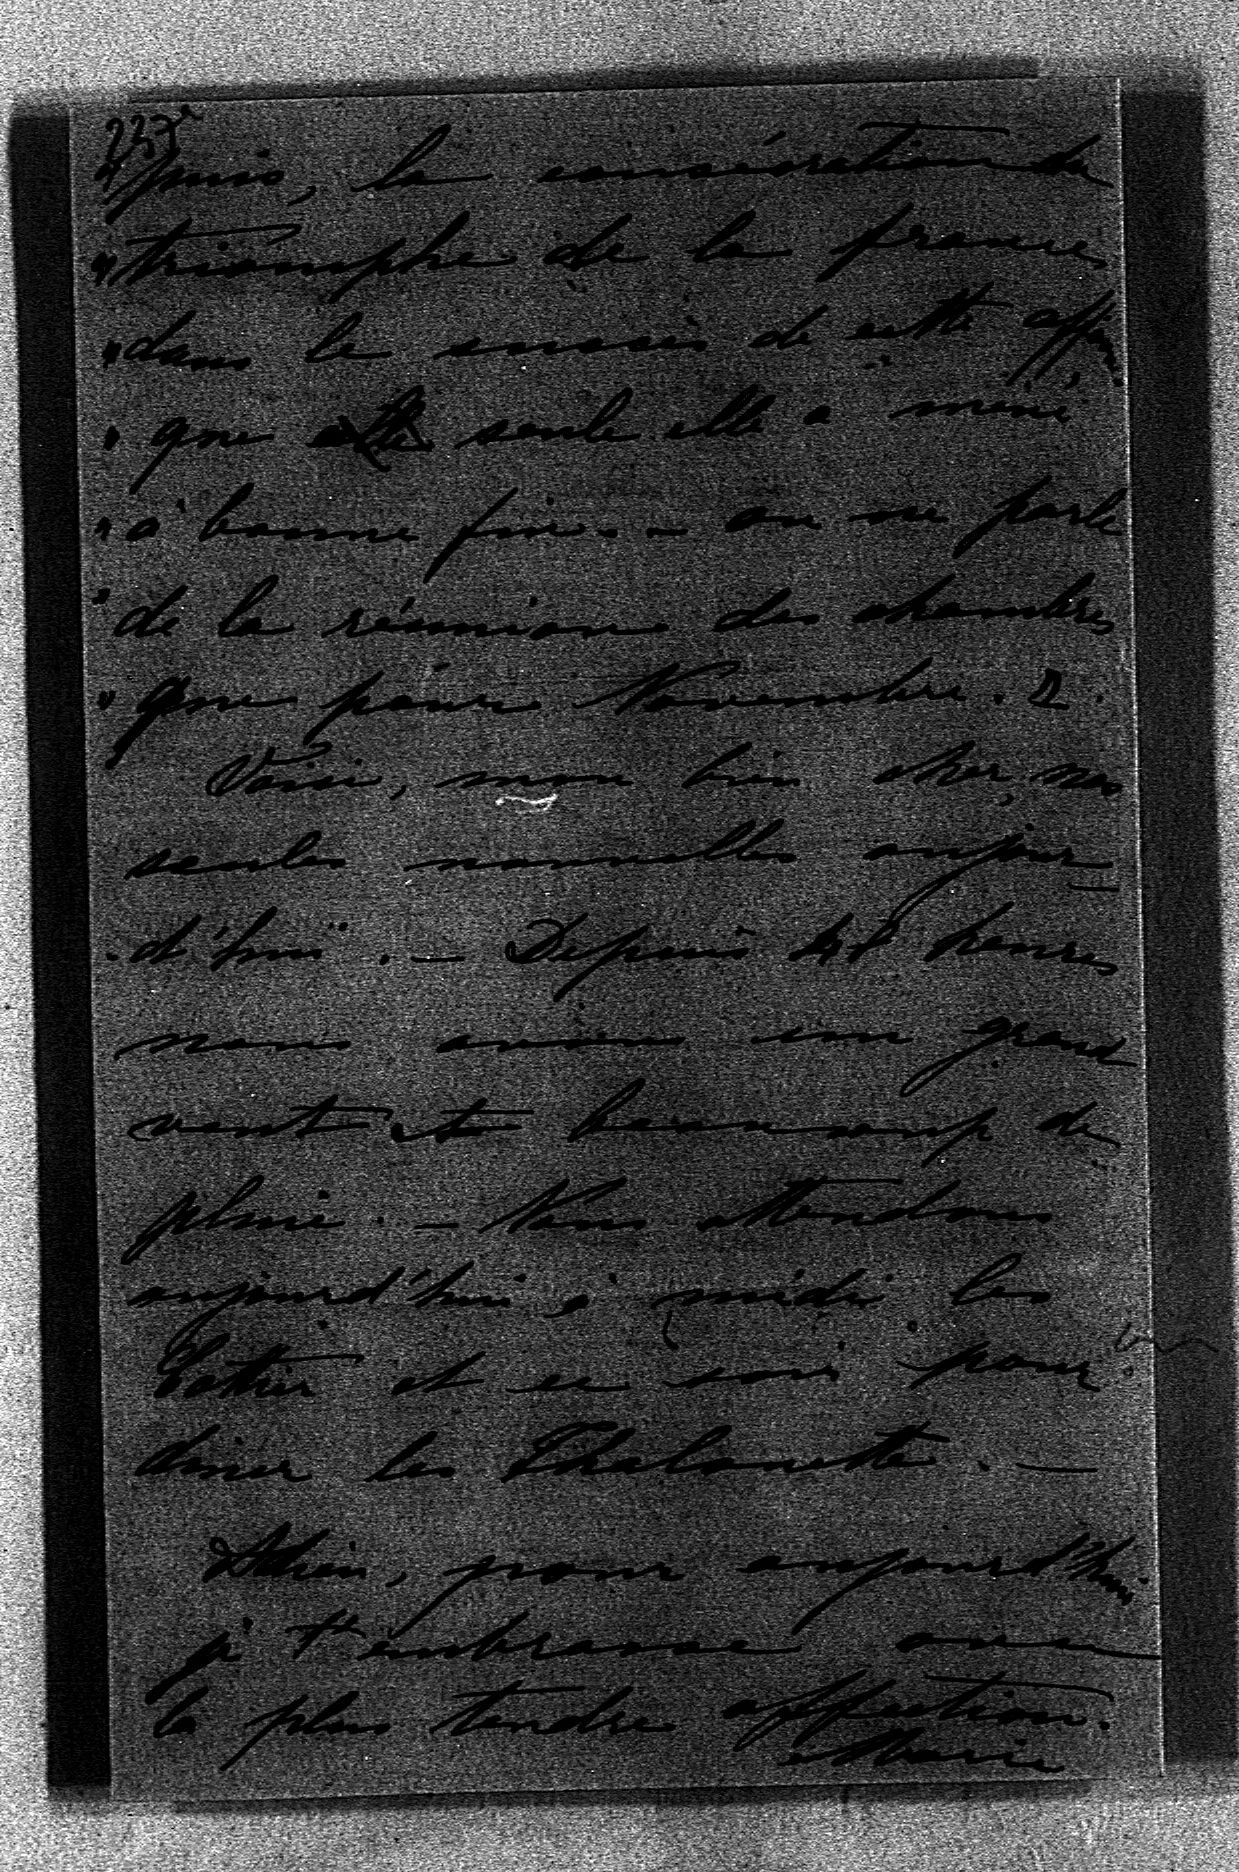 227
" puis, la consécration du
" triomphe de la france
" dans le succès de cette affaire
" que seule elle a mené
" à bonne fin. — on ne parle
" de la réunion des chambres
" que pour Novembre. "
Voici, mon bien cher, nos
seules nouvelles aujour
d'hui. — Depuis 48 heures
nous avons un grand
vent et beaucoup de
pluie. — Nous attendons
aujourd'hui à midi les
et ce soir pour
diner les
Adieu, pour aujourd'hui
je t'embrasse avec
la plus tendre affection.
Marie